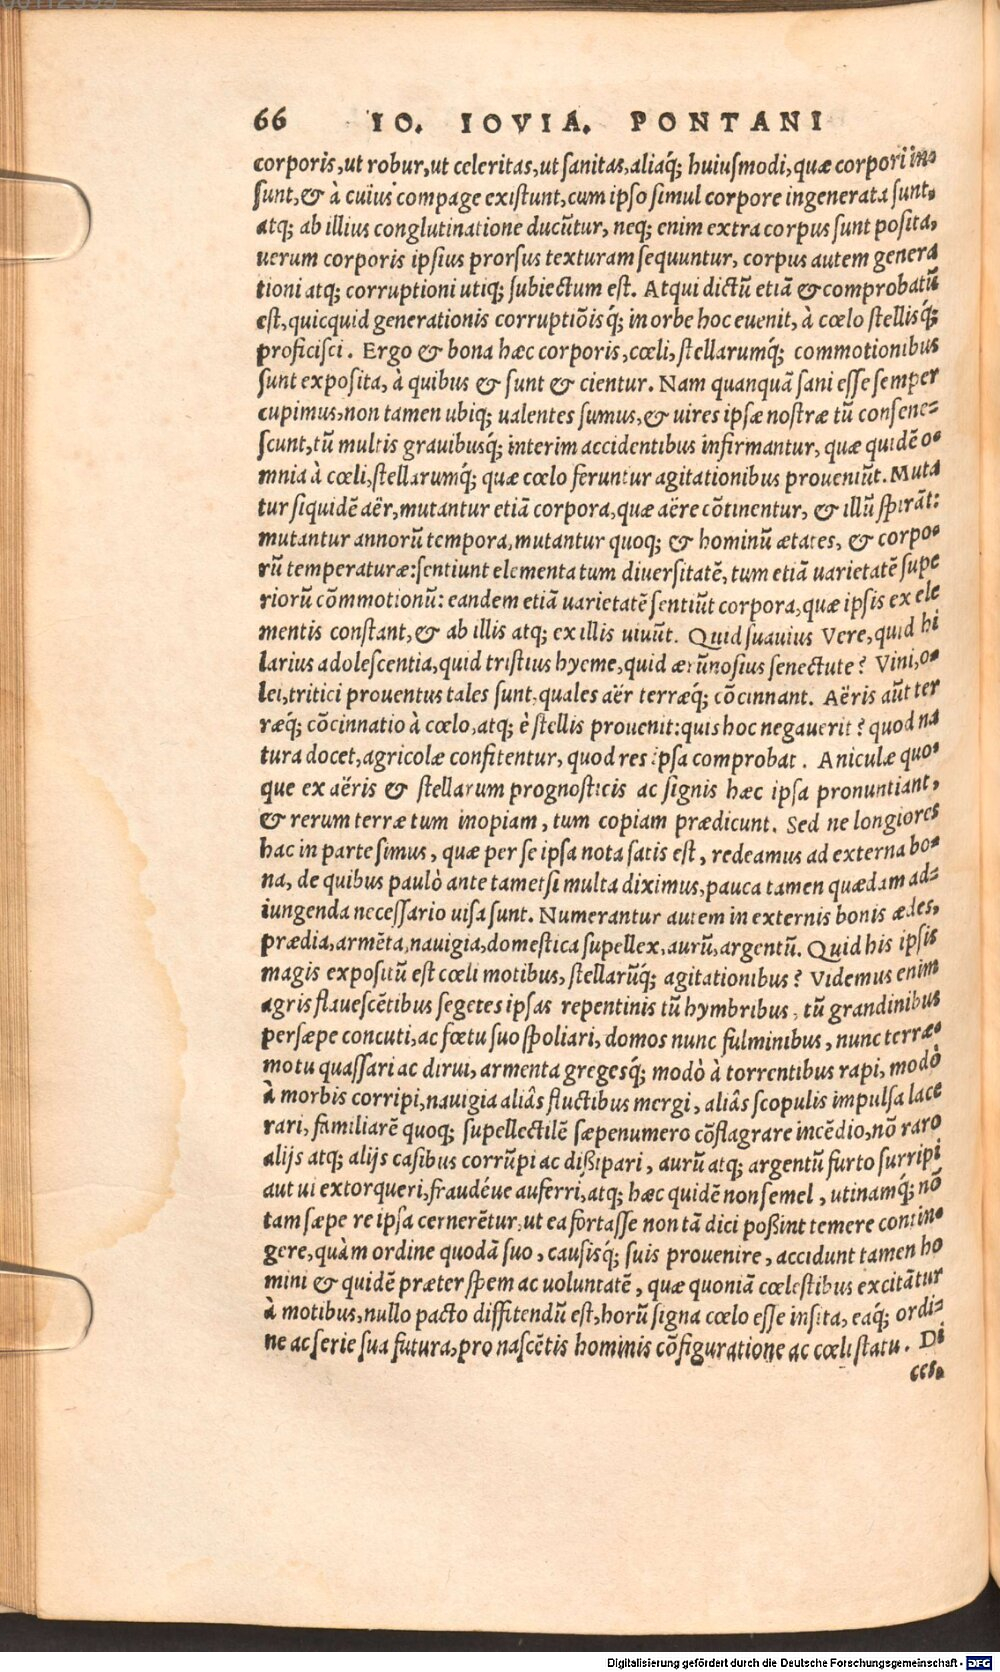 66 IO. IOVIA. PONTANI
corporis, ut robur, ut celeritas, ut sanitas, aliaq́; huiusmodi, quæ corpori in-
sunt, & à cuius compage existunt, cum ipso simul corpore ingenerata sunt,
atq; ab illius conglutinatione ducũtur, neq; enim extra corpus sunt posita,
uerum corporis ipsius prorsus texturam sequuntur, corpus autem genera
tioni atq; corruptioni utiq; subiectum est. Atqui dictũ etiã & comprobatũ
est, quicquid generationis corruptiõisq́; in orbe hoc euenit, à cœlo stellisq́;
proficisci. Ergo & bona hæc corporis, cœli, stellarumq́; commotionibus
sunt exposita, à quibus & sunt & cientur. Nam quanquã sani esse semper
cupimus, non tamen ubiq; ualentes sumus, & uires ipsæ nostræ tũ consene-
scunt, tũ multis grauibusq́; interim accidentibus infirmantur, quæ quidẽ o-
mnia à cœli, stellarumq́; quæ cœlo feruntur agitationibus proueniũt. Muta
tur siquidẽ aër, mutantur etiã corpora, quæ aëre cõtinentur, & illũ spirãt:
mutantur annorũ tempora, mutantur quoq; & hominũ ætates, & corpo-
rũ temperaturæ: sentiunt elementa tum diuersitatẽ, tum etiã uarietatẽ supe
riorũ cõmmotionũ: eandem etiã uarietatẽ sentiũt corpora, quæ ipsis ex ele
mentis constant, & ab illis atq; ex illis uiuũt. Quid suauius Vere, quid hi
larius adolescentia, quid tristius hyeme, quid ærũnosius senectute? Vini, o-
lei, tritici prouentus tales sunt, quales aër terræq́; cõcinnant. Aëris aũt ter
ræq́; cõcinnatio à cœlo, atq; è stellis prouenit: quis hoc negauerit? quod na
tura docet, agricolæ confitentur, quod res ipsa comprobat. Aniculæ quo-
que ex aëris & stellarum prognosticis ac signis hæc ipsa pronuntiant,
& rerum terræ tum inopiam, tum copiam prædicunt. Sed ne longiores
hac in parte simus, quæ per se ipsa nota satis est, redeamus ad externa bo-
na, de quibus paulò ante tametsi multa diximus, pauca tamen quædam ad-
iungenda necessario uisa sunt. Numerantur autem in externis bonis ædes,
prædia, armẽta, nauigia, domestica supellex, aurũ, argentũ. Quid his ipsis
magis expositũ est cœli motibus, stellarũq́; agitationibus? Videmus enim
agris flauescẽtibus segetes ipsas repentinis tũ hymbribus, tũ grandinibus
persæpe concuti, ac fœtu suo spoliari, domos nunc fulminibus, nunc terræ-
motu quassari ac dirui, armenta gregesq́; modò à torrentibus rapi, modò
à morbis corripi, nauigia aliâs fluctibus mergi, aliâs scopulis impulsa lace
rari, familiarẽ quoq; supellectilẽ sæpenumero cõflagrare incẽdio, nõ raro
alijs atq; alijs casibus corrũpi ac dißipari, aurũ atq; argentũ furto surripi
aut ui extorqueri, fraudéue auferri, atq; hæc quidẽ non semel, utinamq́; nõ
tam sæpe re ipsa cernerẽtur, ut ea fortasse non tã dici poßint temere contin-
gere, quàm ordine quodã suo, causisq́; suis prouenire, accidunt tamen ho
mini & quidẽ præter spem ac uoluntatẽ, quæ quoniã cœlestibus excitãtur
à motibus, nullo pacto diffitendũ est, horũ signa cœlo esse insita, eaq́; ordi-
ne ac serie sua futura, pro nascẽtis hominis cõfiguratione ac cœli statu. Di
ces,
Digitalisierung gefördert durch die Deutsche Forschungsgemeinschaft - DFG